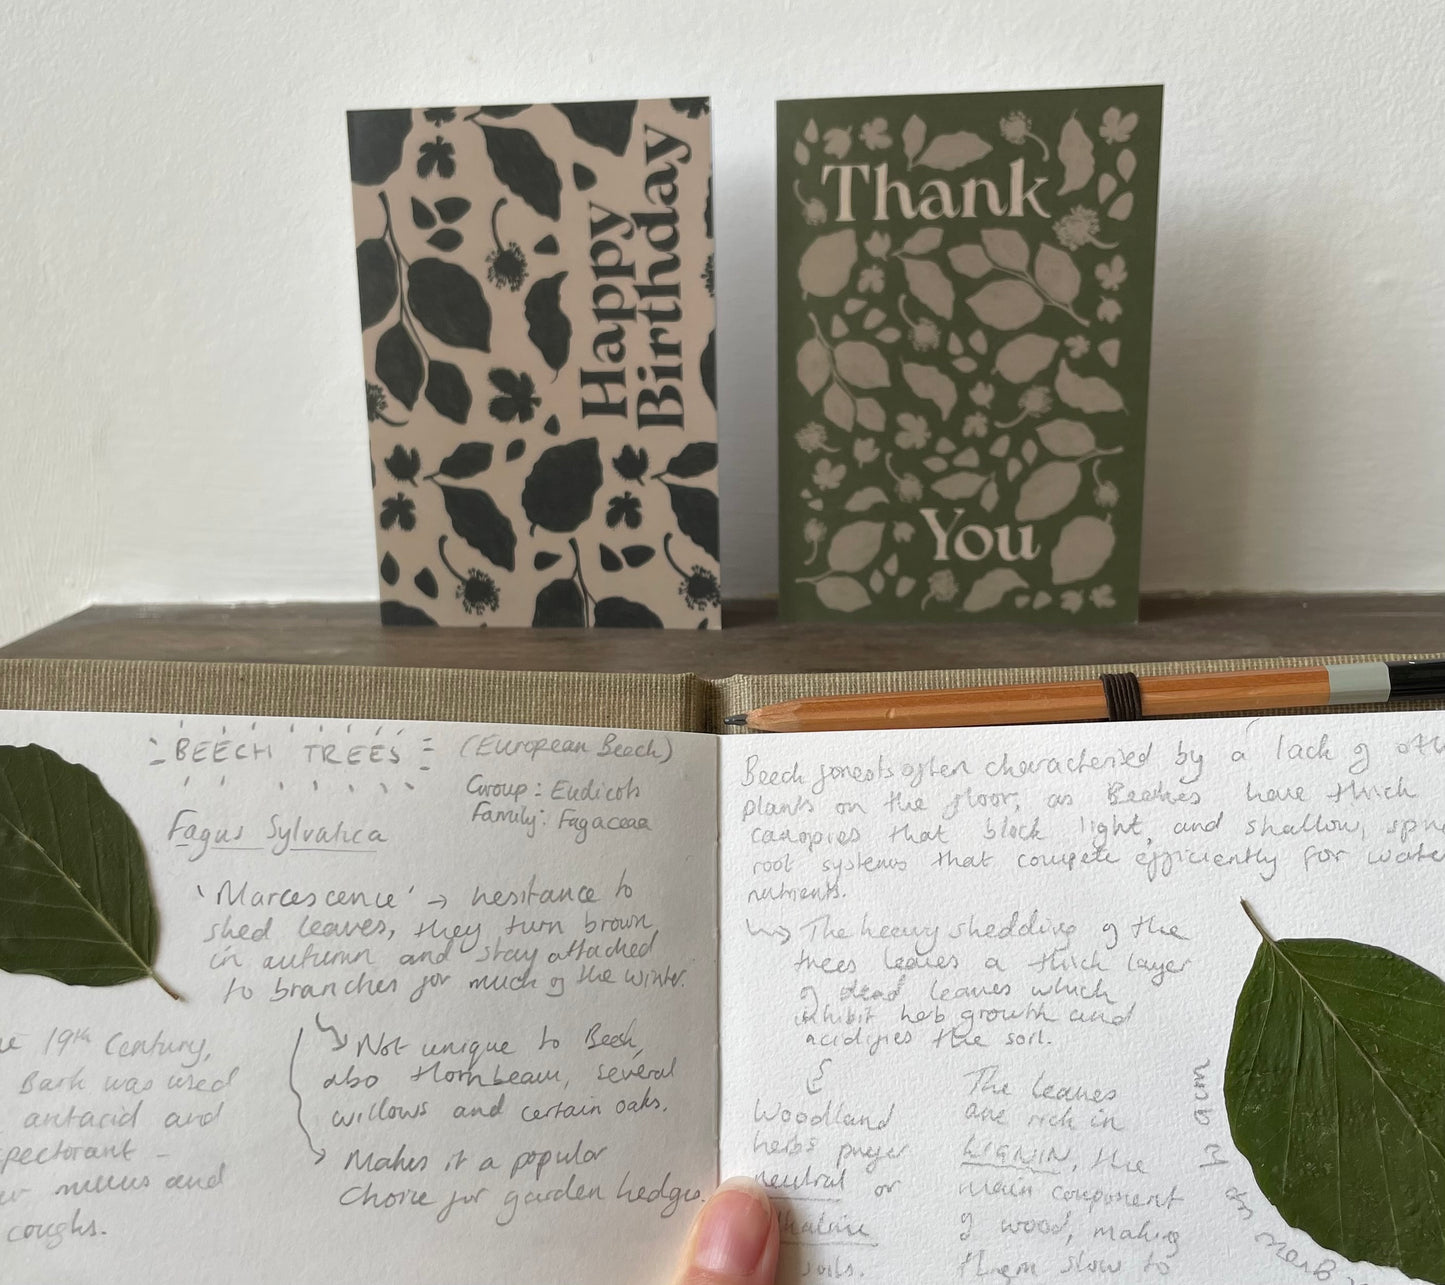 Happy
Birthday
Thank
You
BEECH TREES
(European Beech)
Group: Eudicots
Family: Fagaceae
Fagus Sylvatica
'Marcescence' → hesitance to
shed leaves, they turn brown
in autumn and stay attached
to branches for much of the winter.
Not unique to Beech,
also Hornbeam, several
willows and certain oaks.
Makes it a popular
choice for garden hedges.
19th Century,
Bark was used
antacid and
pectorant -
mucus and
coughs.
Beech forests often characterised by a lack of
plants on the floor, as Beeches have thick
canopies that block light, and shallow,
root systems that compete efficiently for water
nutrients.
↳ The heavy shedding of the
trees leaves a thick layer
of dead leaves which
inhibit herb growth and
acidifies the soil.
Woodland
herbs prefer
neutral or
soils.
The leaves
are rich in
LIGNIN, the
main component
of wood, making
them slow to